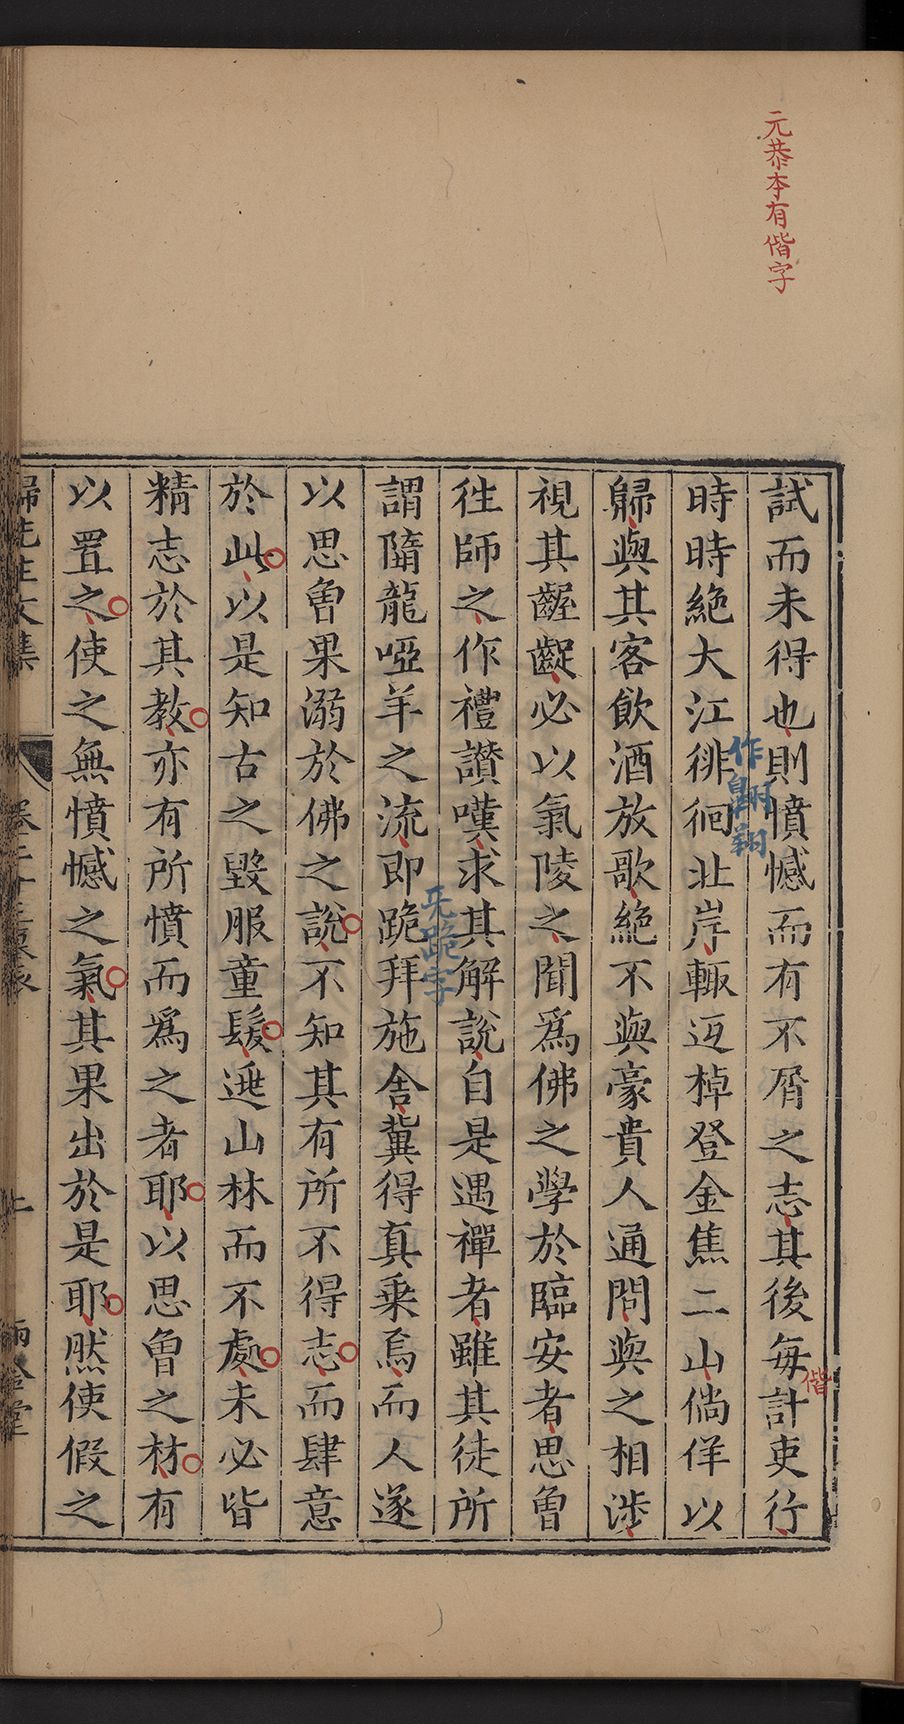 元恭本有偕字
試而未得也則憤憾而有不屑之志其後每計吏行
偕
時時絶大江徘徊北岸輙返棹登金焦二山倘佯以
作翺翔
歸與其客飲酒放歌絶不與豪貴人通問與之相渉
視其齷齪必以氣陵之聞爲佛之學於臨安者思曾
徃師之作禮讃嘆求其解說自是遇禪者雖其徒所
謂隨龍啞羊之流即跪拜施舎冀得真乗焉而人遂
无跪字
以思曾果溺於佛之說不知其有所不得志而肆意
於此以是知古之毀服童髮逃山林而不處未必皆
精志於其教亦有所憤而爲之者耶以思曾之材有
以置之使之無憤憾之氣其果出於是耶然使假之
歸先生文集